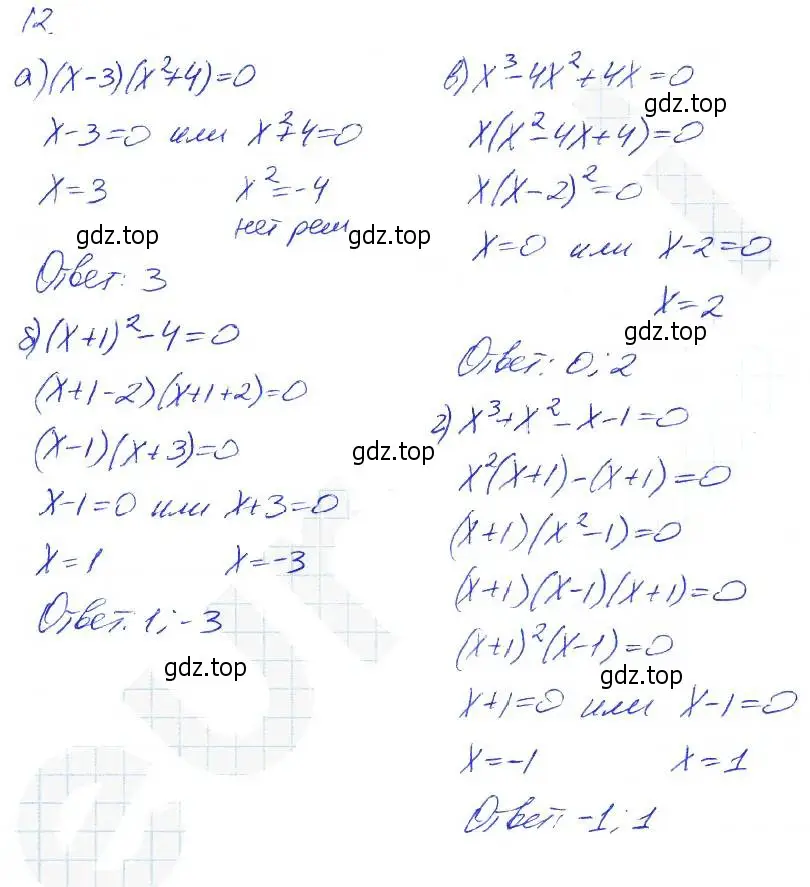 12.
а) (x-3)(x²+4)=0
x-3=0 или x²+4=0
x=3 x²=-4
нет реш
gdz.top
Ответ: 3
б) (x+1)²-4=0
(x+1-2)(x+1+2)=0
(x-1)(x+3)=0
x-1=0 или x+3=0
x=1 x=-3
Ответ: 1; -3
gdz.top
в) x³-4x²+4x=0
gdz.top
x(x²-4x+4)=0
x(x-2)²=0
x=0 или x-2=0
x=2
gdz.top
Ответ: 0; 2
г) x³+x²-x-1=0
gdz.top
x²(x+1)-(x+1)=0
(x+1)(x²-1)=0
(x+1)(x-1)(x+1)=0
(x+1)²(x-1)=0
gdz.top
x+1=0 или x-1=0
x=-1 x=1
Ответ: -1; 1